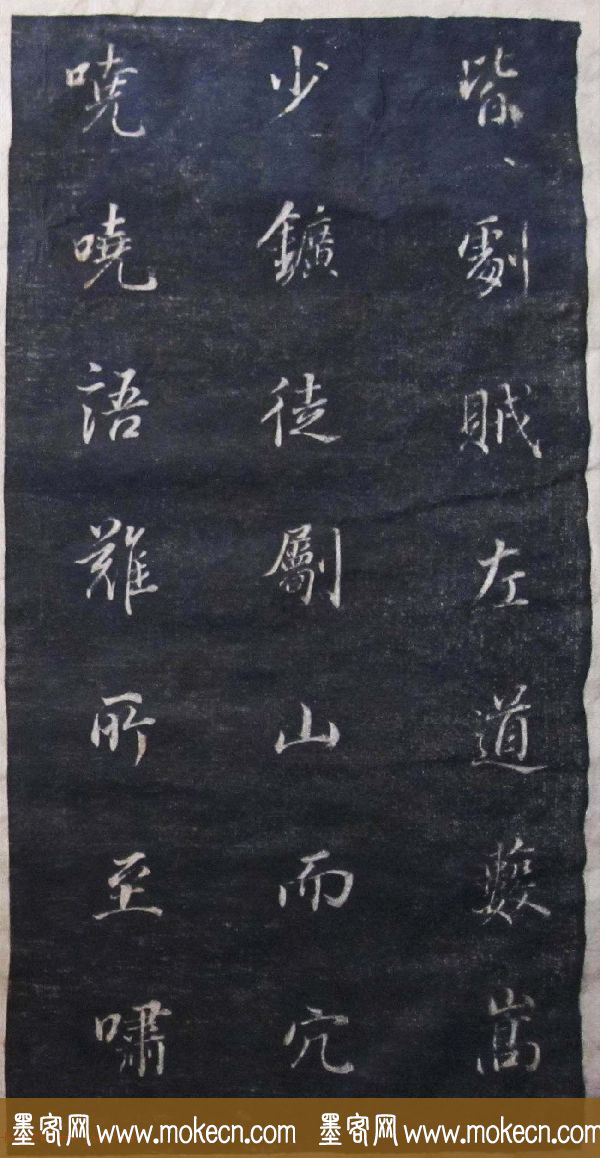 劇賊左道藪嵩
少鑛徒劚山而穴
嘵嘵語難所至嘯
墨客网 www.mokecn.com 墨客网 www.mokecn.com